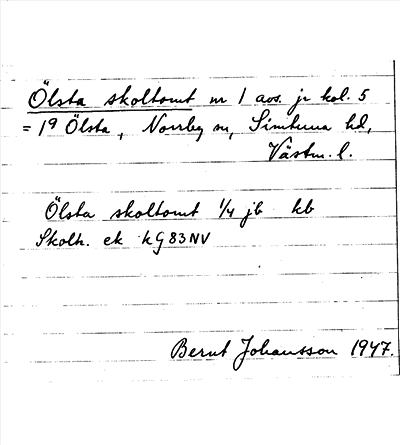 Ölsta skoltomt nr 1 avs. jr kol. 5
= 1⁹ Ölsta, Norrby sn, Simtuna hd,
Västm. l.
Ölsta skoltomt 1/4 jb kb
Skolh. ek kG 83 NV
Bernt Johansson 1947.